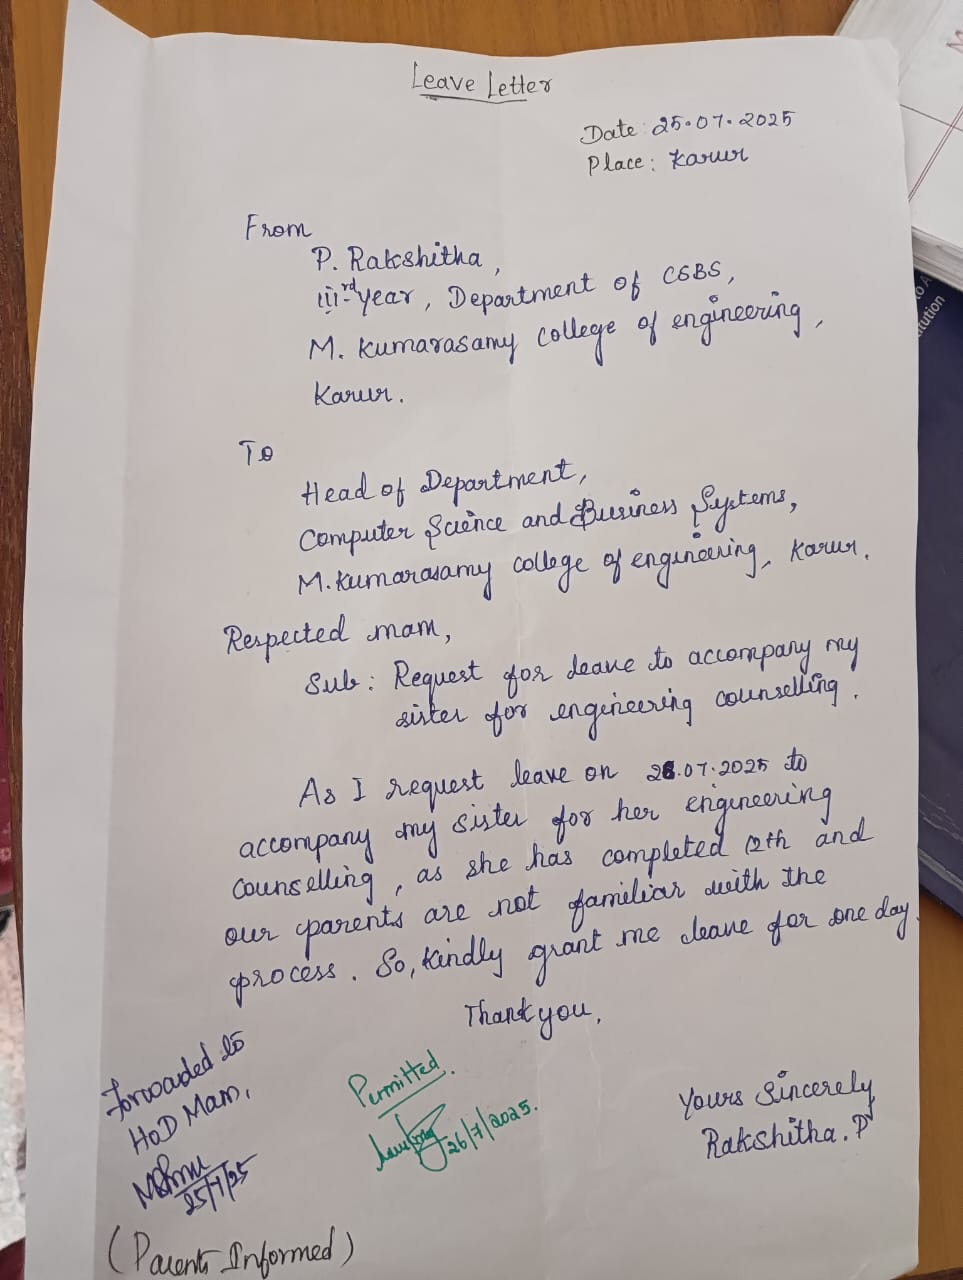 Leave Letter
Date: 25.07.2025
Place: Karur
From
P. Rakshitha,
iii-rd year, Department of CSBS,
M. Kumarasamy college of engineering,
Karur.
To
Head of Department,
Computer Science and Business Systems,
M. Kumarasamy college of engineering, Karur.
Respected mam,
Sub: Request for leave to accompany my
sister for engineering counselling.
As I request leave on 26.07.2025 to
accompany my sister for her engineering
counselling, as she has completed 12th and
our parents are not familiar with the
process. So, kindly grant me leave for one day.
Thank you,
Forwarded to
HoD Mam,
25/7/25
(Parents Informed)
Permitted.
26/7/2025.
Yours Sincerely
Rakshitha. P